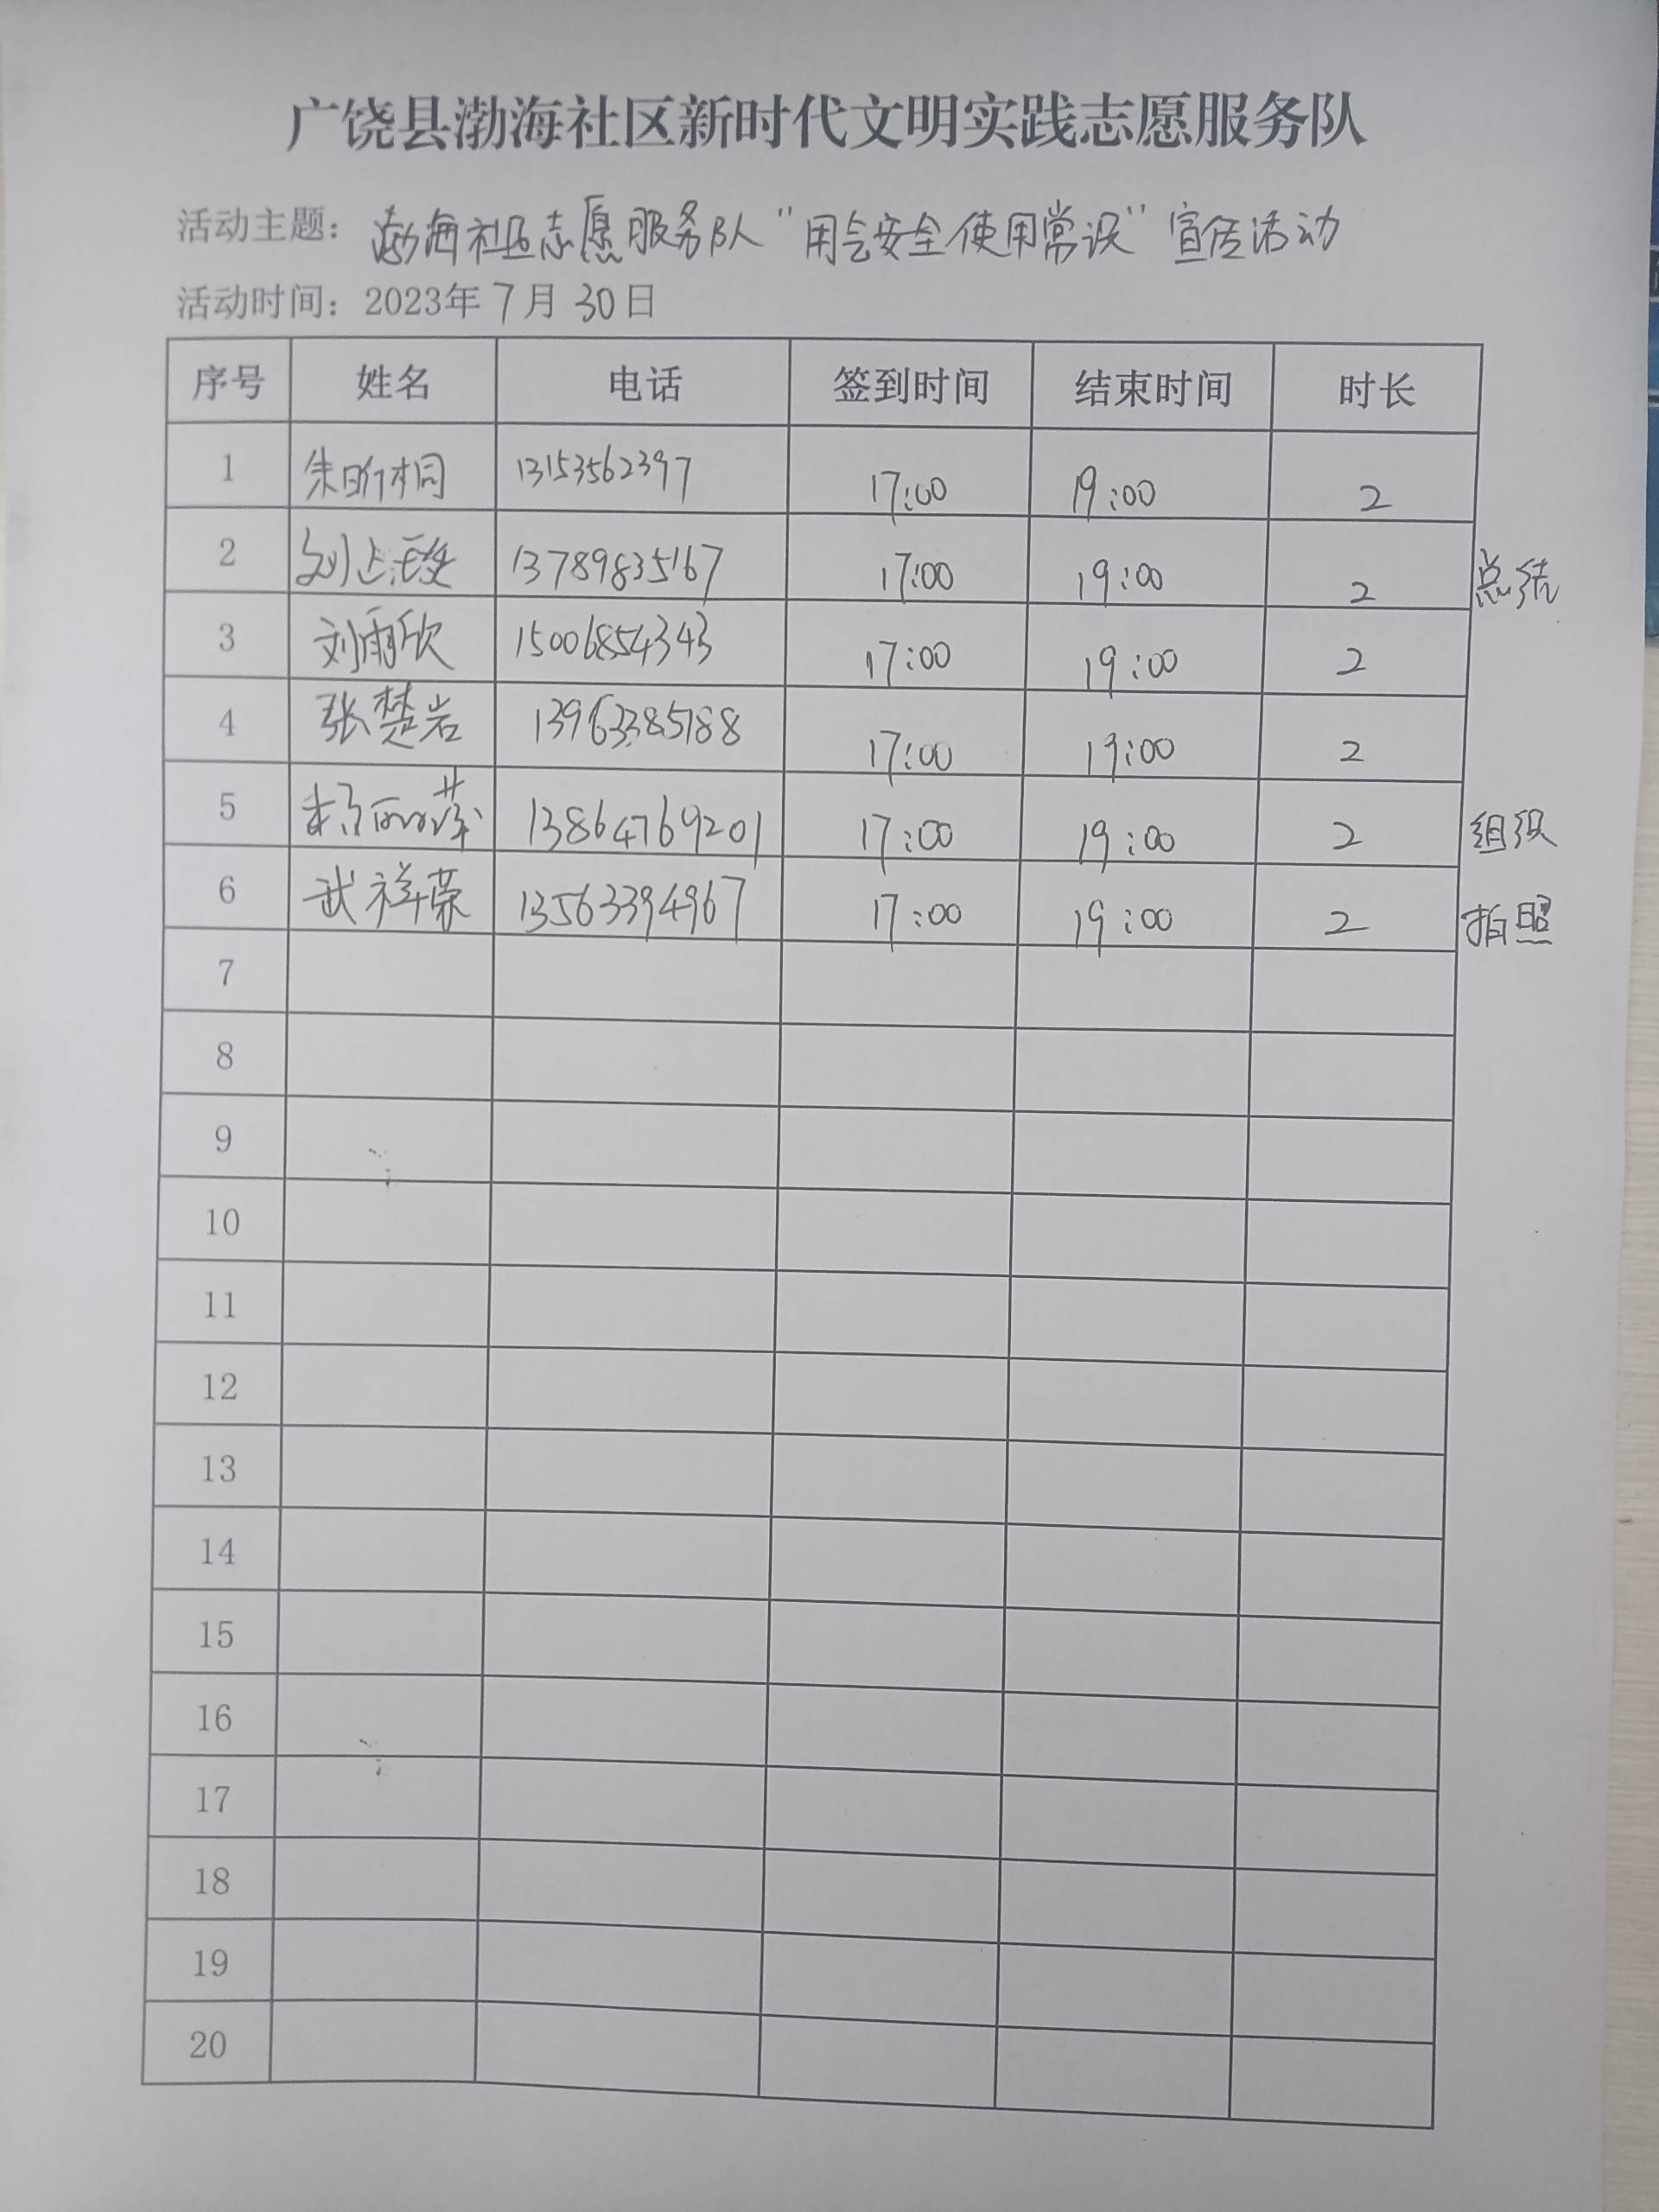 广饶县渤海社区新时代文明实践志愿服务队
活动主题：渤海社区志愿服务队“用气安全使用常识”宣传活动
活动时间：2023年7月30日
序号 姓名 电话 签到时间 结束时间 时长
1 朱昕桐 13153562397 17:00 19:00 2
2 刘 13789835167 17:00 19:00 2 总结
3 刘雨欣 15006854343 17:00 19:00 2
4 张楚岩 13963385188 17:00 19:00 2
5 13864769201 17:00 19:00 2 组织
6 武祥荣 13563394967 17:00 19:00 2 拍照
7
8
9
10
11
12
13
14
15
16
17
18
19
20